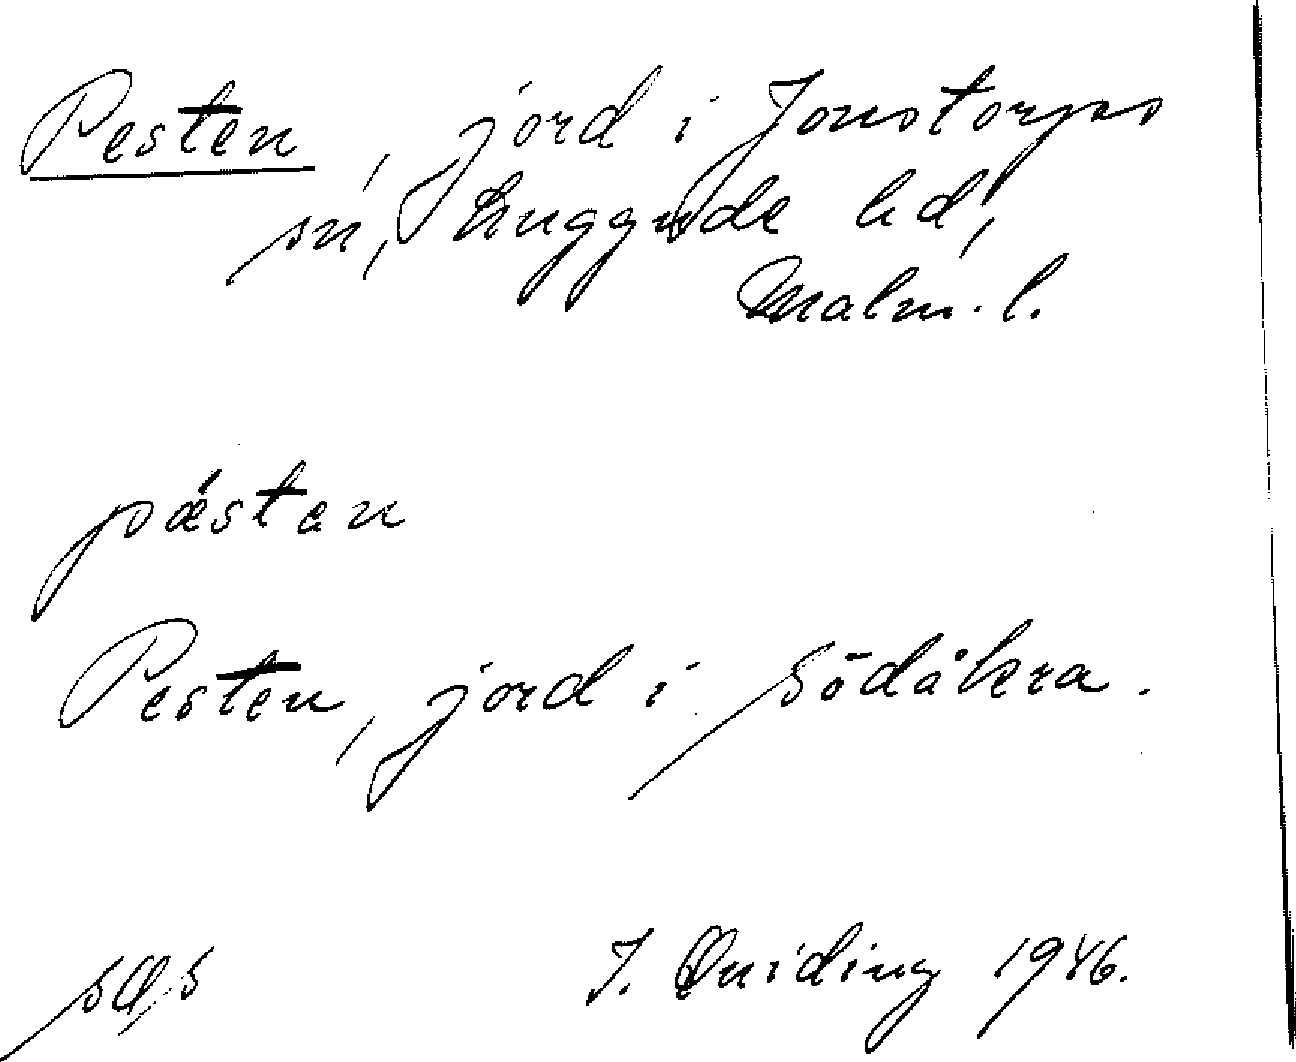 Pesten, jord i Jonstorps
sn, Luggude hd,
Malm. l.
pǽsten
Pesten, jord i Södåkra.
I. Quiding 1946.